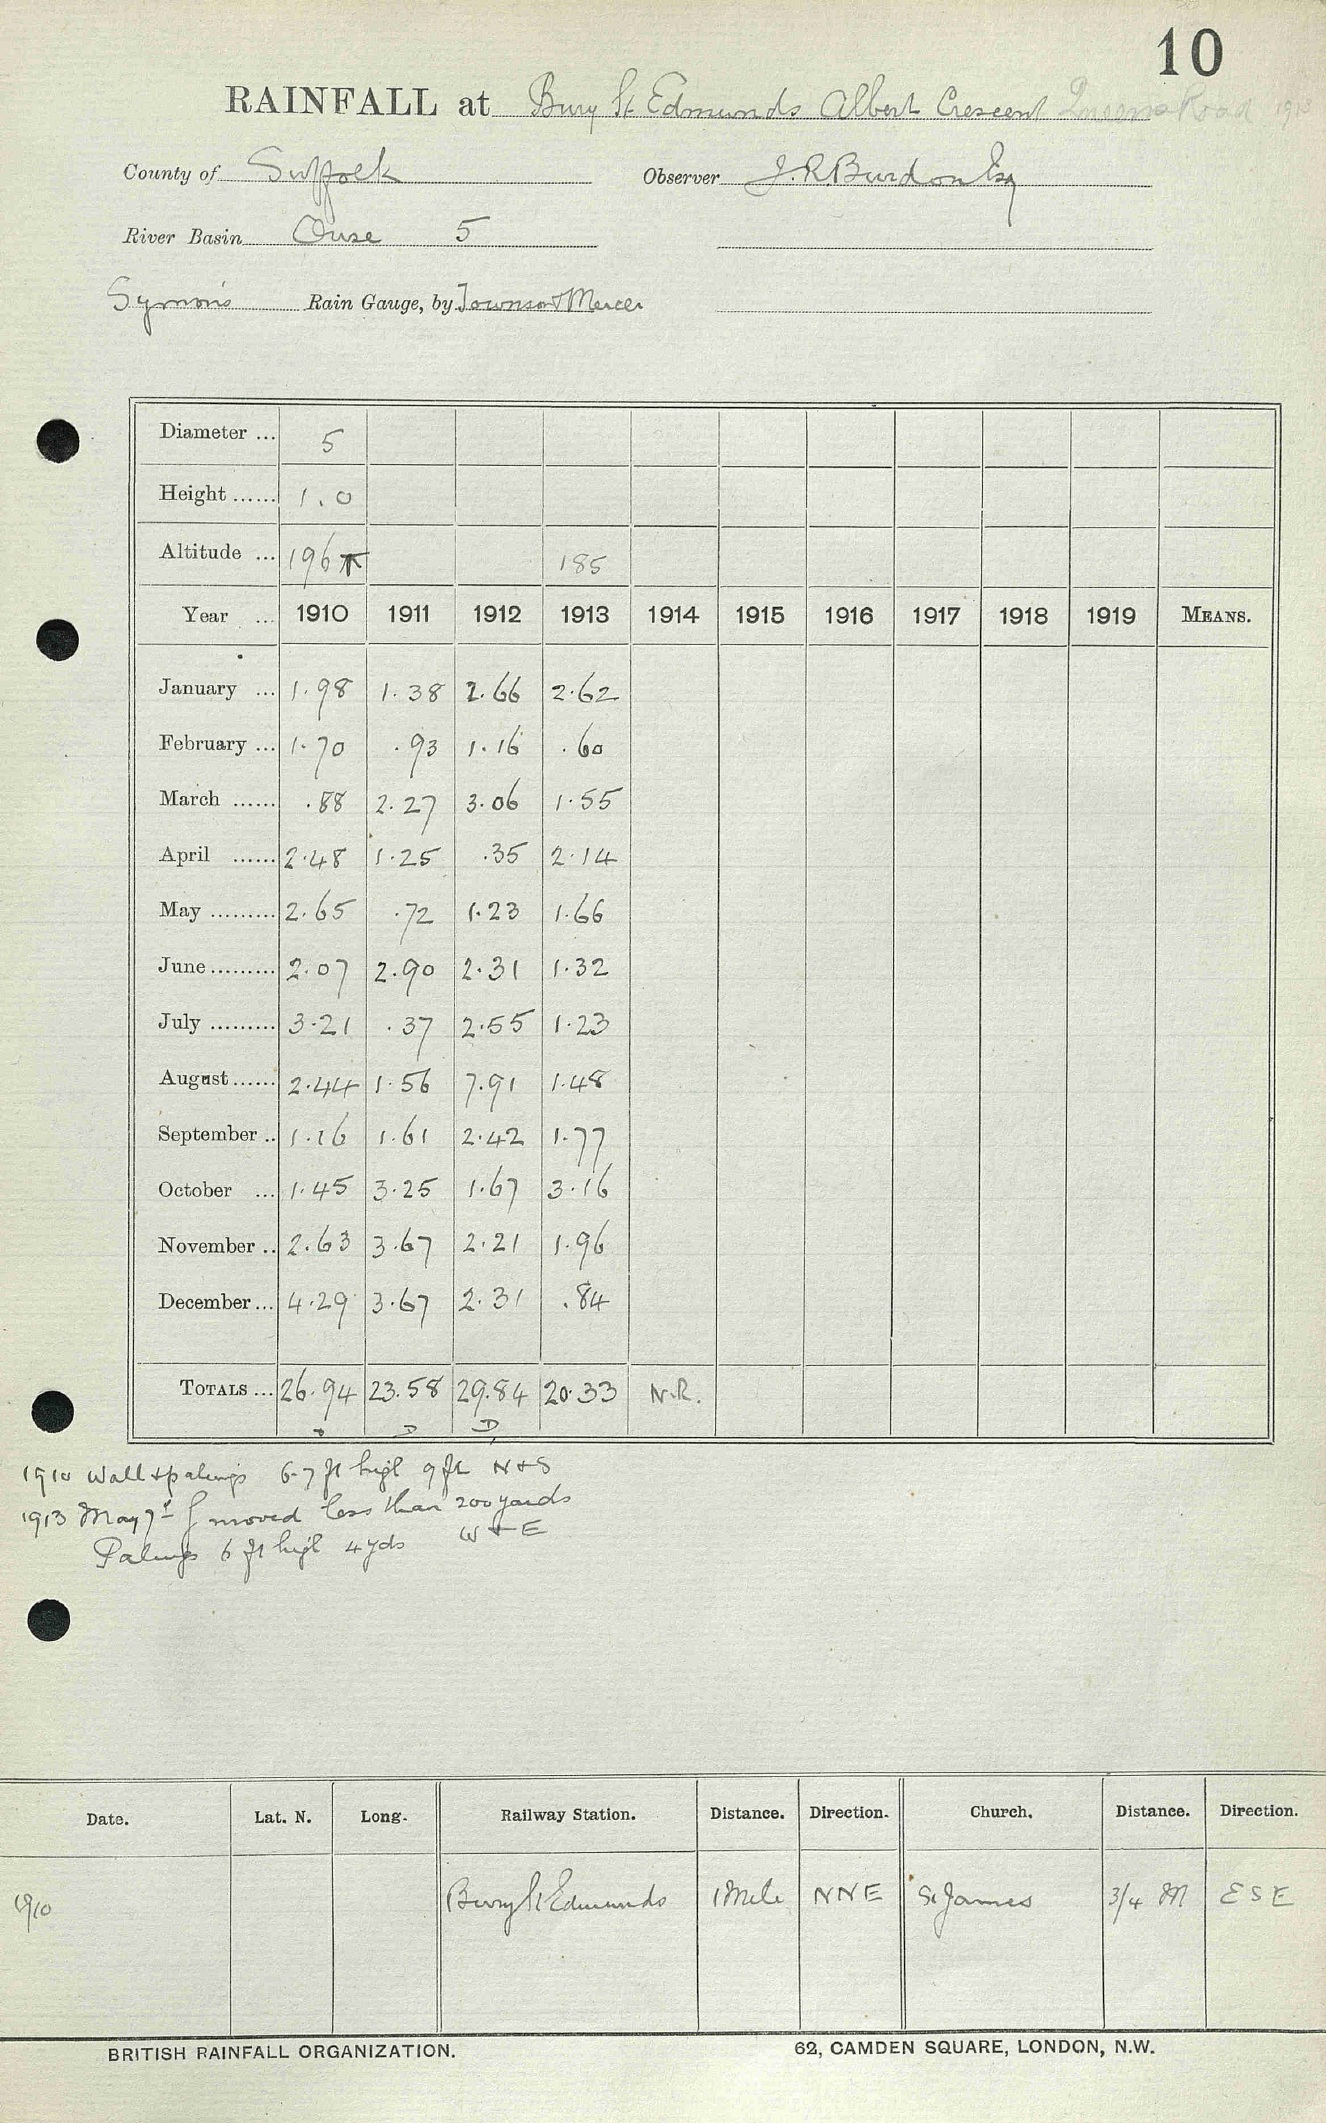 10
RAINFALL at Bury St Edmunds Albert Crescent Queens Road 1913
County of Suffolk Observer J. R Burdon Esq
River Basin Ouse 5
Symons Rain Gauge, by Townson & Mercer
Diameter ... 5
Height ...... 1.0
Altitude ... 196 T 185
Year ... 1910 1911 1912 1913 1914 1915 1916 1917 1918 1919 MEANS.
January ... 1.98 1.38 2.66 2.62
February ... 1.70 .93 1.16 .60
March ...... .88 2.27 3.06 1.55
April ...... 2.48 1.25 .35 2.14
May ......... 2.65 .72 1.23 1.66
June ......... 2.07 2.90 2.31 1.32
July ......... 3.21 .37 2.55 1.23
August ...... 2.44 1.56 7.91 1.48
September .. 1.16 1.61 2.42 1.77
October ... 1.45 3.25 1.67 3.16
November .. 2.63 3.67 2.21 1.96
December ... 4.29 3.67 2.31 .84
TOTALS ... 26.94 23.58 29.84 20.33 N.R.
D D
1910 Wall & palings 6-7 ft high 9 ft N & S
1913 May 7th moved less than 200 yards
Palings 6 ft high 4 yds W & E
Date. Lat. N. Long. Railway Station. Distance. Direction. Church. Distance. Direction.
1910 Bury St Edmunds 1 Mile NNE St James 3/4 M ESE
BRITISH RAINFALL ORGANIZATION. 62, CAMDEN SQUARE, LONDON, N.W.